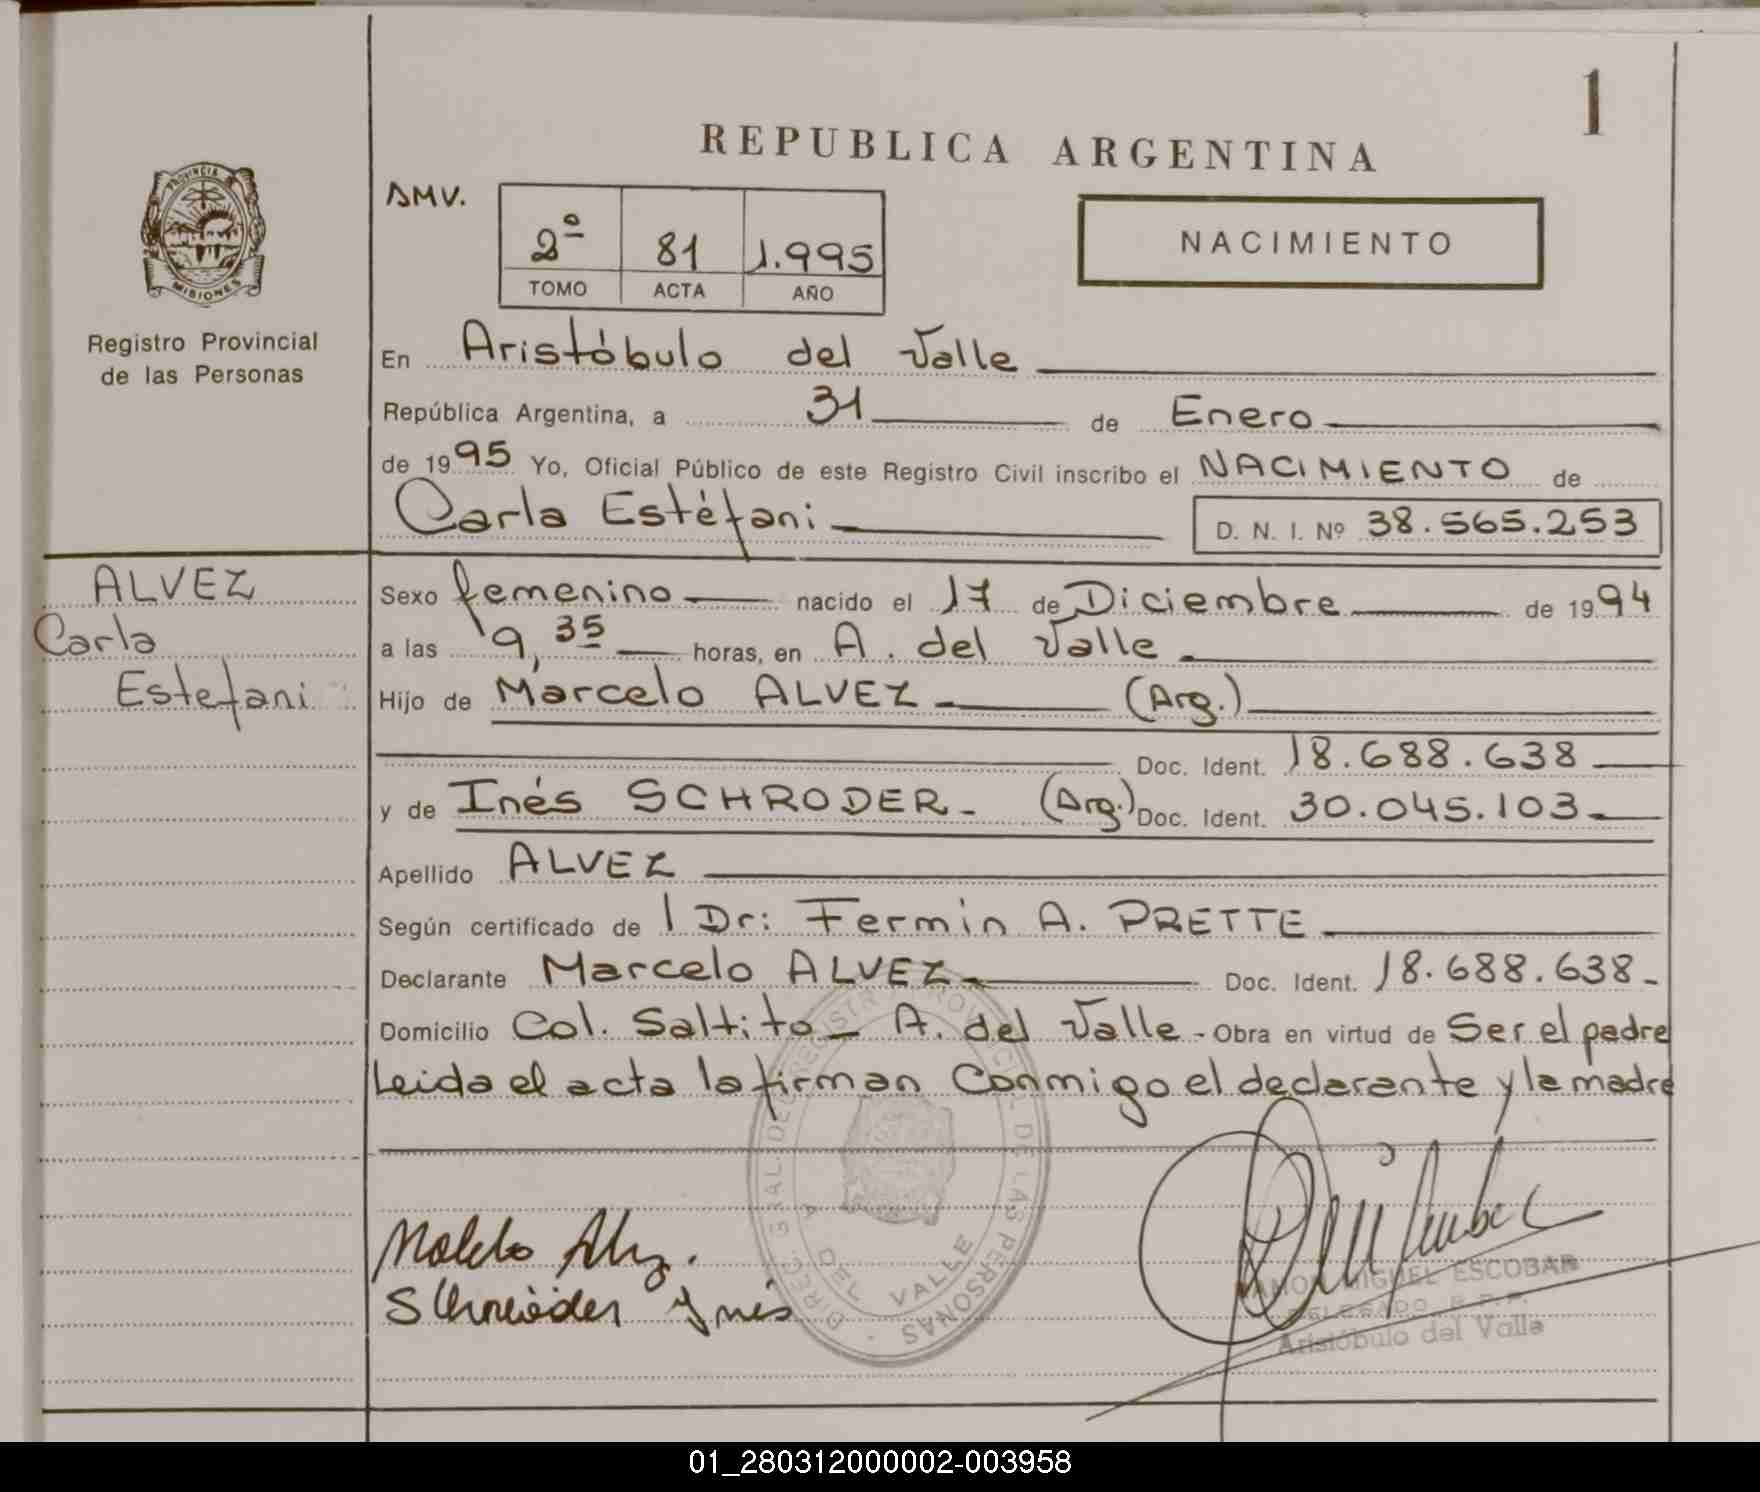 1
REPUBLICA ARGENTINA
PROVINCIA
MISIONES
Registro Provincial
de las Personas
AMV.
2º 81 1.995
TOMO ACTA AÑO
NACIMIENTO
En Aristóbulo del Valle
República Argentina, a 31 de Enero
de 1995 Yo, Oficial Público de este Registro Civil inscribo el NACIMIENTO de
Carla Estéfani
D. N. I. Nº 38.565.253
ALVEZ
Carla
Estefani
Sexo femenino nacido el 17 de Diciembre de 1994
a las 9,35 horas, en A. del Valle
Hijo de Marcelo ALVEZ (Arg.)
Doc. Ident. 18.688.638
y de Inés SCHRODER- (Arg.) Doc. Ident. 30.045.103-
Apellido ALVEZ
Según certificado de l Dr: Fermín A. PRETTE
Declarante Marcelo ALVEZ Doc. Ident. 18.688.638-
Domicilio Col. Saltito - A. del Valle - Obra en virtud de Ser el padre
Leida el acta la firman Conmigo el declarante y la madre
DIREC. GRAL DEL REGISTRO PROVINCIAL DE LAS PERSONAS
A DEL VALLE
Schrieder Ynés
RAMON MIGUEL ESCOBAR
DELEGADO R.P.P.
Aristóbulo del Valle
01_280312000002-003958